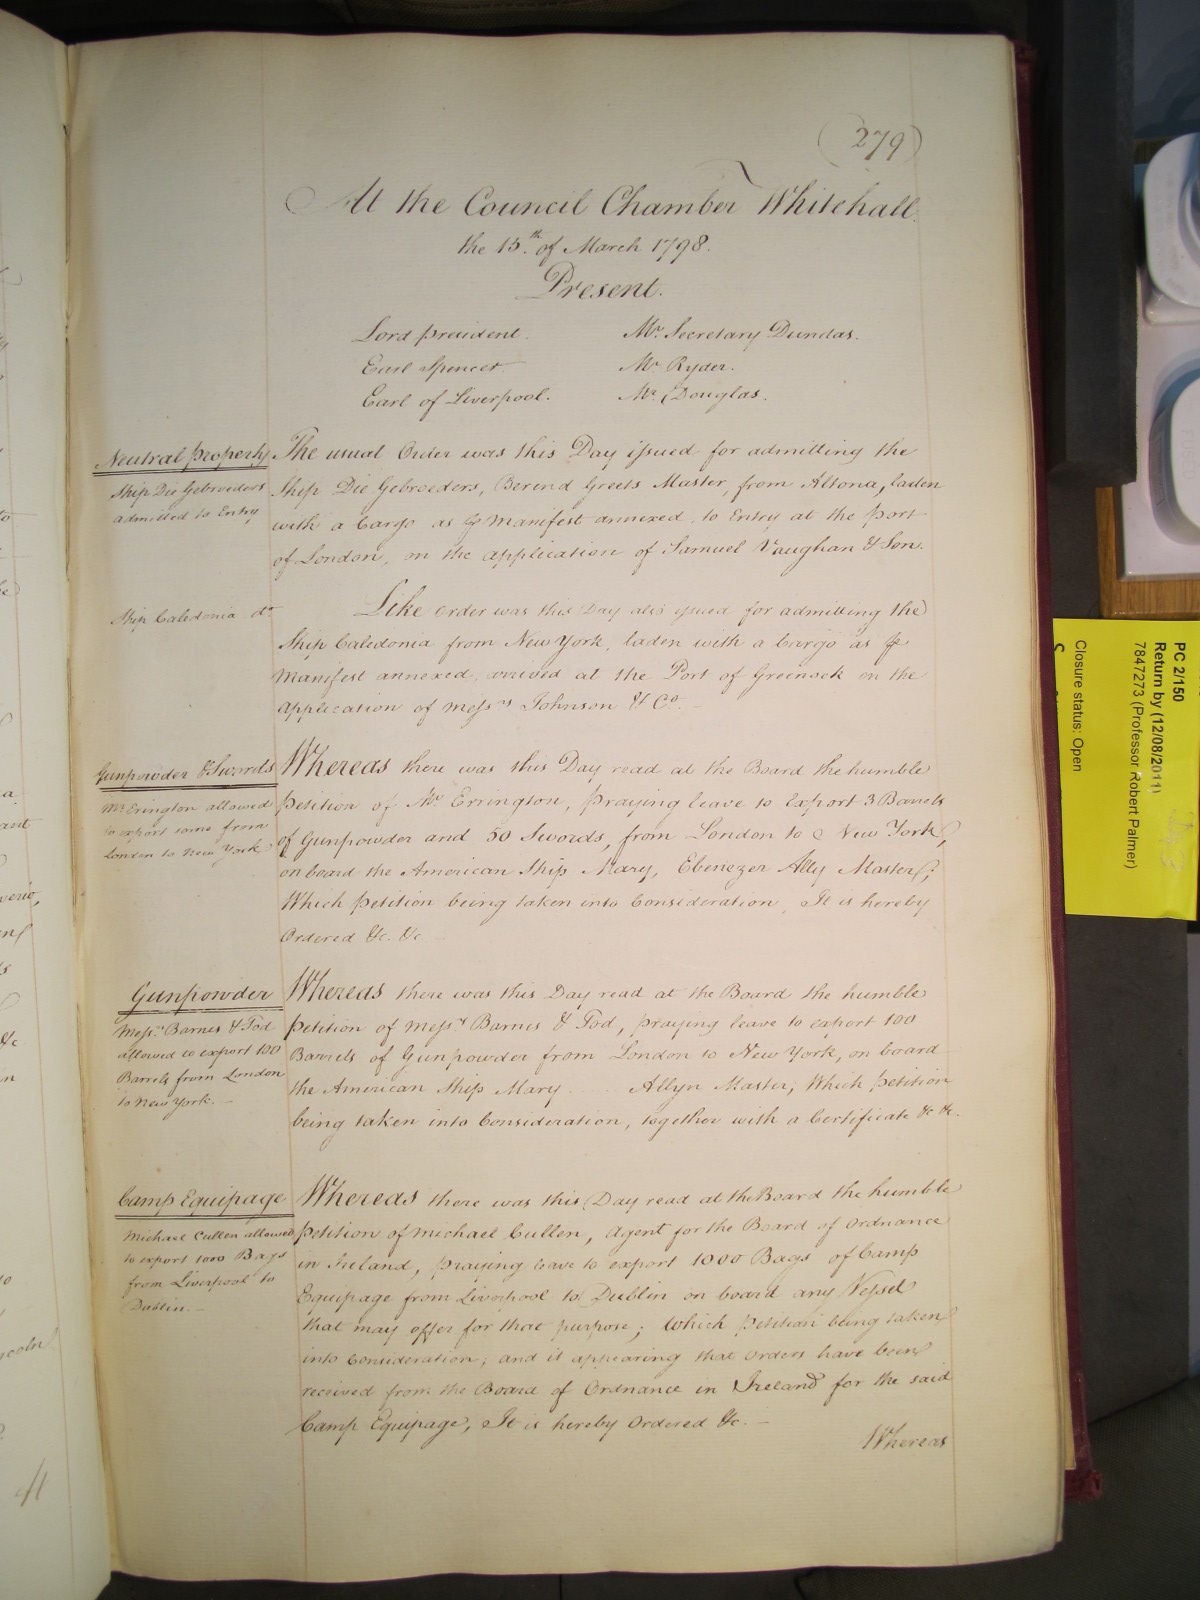 (279)
At the Council Chamber Whitehall
the 15th of March 1798.
Present.
Lord president. Mr Secretary Dundas.
Earl Spencer Mr Ryder.
Earl of Liverpool. Mr Douglas.
Neutral property
Ship Die Gebroeders
admitted to Entry
The usual Order was this Day issued for admitting the
Ship Die Gebroeders, Berend Greets Master, from Altona, laden
with a Cargo as ⅌ Manifest annexed, to Entry at the port
of London, on the application of Samuel Vaughan & Son.
Ship Caledonia do
Like order was this Day also issued for admitting the
Ship Caledonia from New York, laden with a Cargo as ⅌
Manifest annexed, arrived at the Port of Greenock on the
application of Messrs Johnson & Co.
Gunpowder & Swords
Mr Erington allowed
to export some from
London to New York
Whereas there was this Day read at the Board the humble
petition of Mr Errington, praying leave to Export 3 Barrels
of Gunpowder and 50 Swords, from London to New York,
on board the American Ship Mary, Ebenezer Ally Master;
Which petition being taken into Consideration, It is hereby
Ordered &c. &c
Gunpowder
Messrs Barnes & Tod
allowed to export 100
Barrels from London
to New York.
Whereas there was this Day read at the Board the humble
petition of Messrs Barnes & Tod, praying leave to export 100
Barrels of Gunpowder from London to New York, on board
the American Ship Mary Allyn Master; Which petition
being taken into Consideration, together with a Certificate &c &c.
Camp Equipage
Michael Cullen allowed
to export 1000 Bags
from Liverpool to
Dublin.
Whereas there was this Day read at the Board the humble
petition of Michael Cullen, Agent for the Board of Ordnance
in Ireland, praying leave to export 1000 Bags of Camp
Equipage from Liverpool to Dublin on board any Vessel
that may offer for that purpose; Which petition being taken
into Consideration; and it appearing that Orders have been
received from the Board of Ordnance in Ireland for the said
Camp Equipage, It is hereby Ordered &c.
Whereas
PC 2/150
Return by (12/08/2011)
7847273 (Professor Robert Palmer)
Closure status: Open